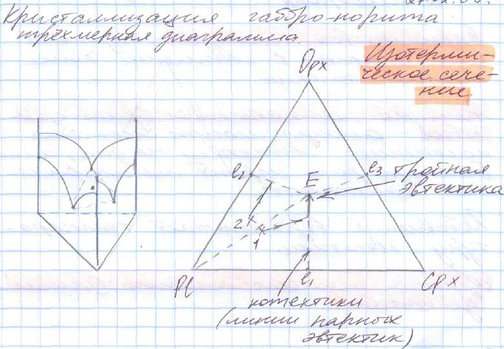 Кристаллизация габбро-норита
трёхмерная диаграмма
Opx
Изотерми-
ческое сече-
ние
e2
E
e3
тройная
эвтектика
2
1
Pl
e1
Cpx
котектики
(линии парных
эвтектик)